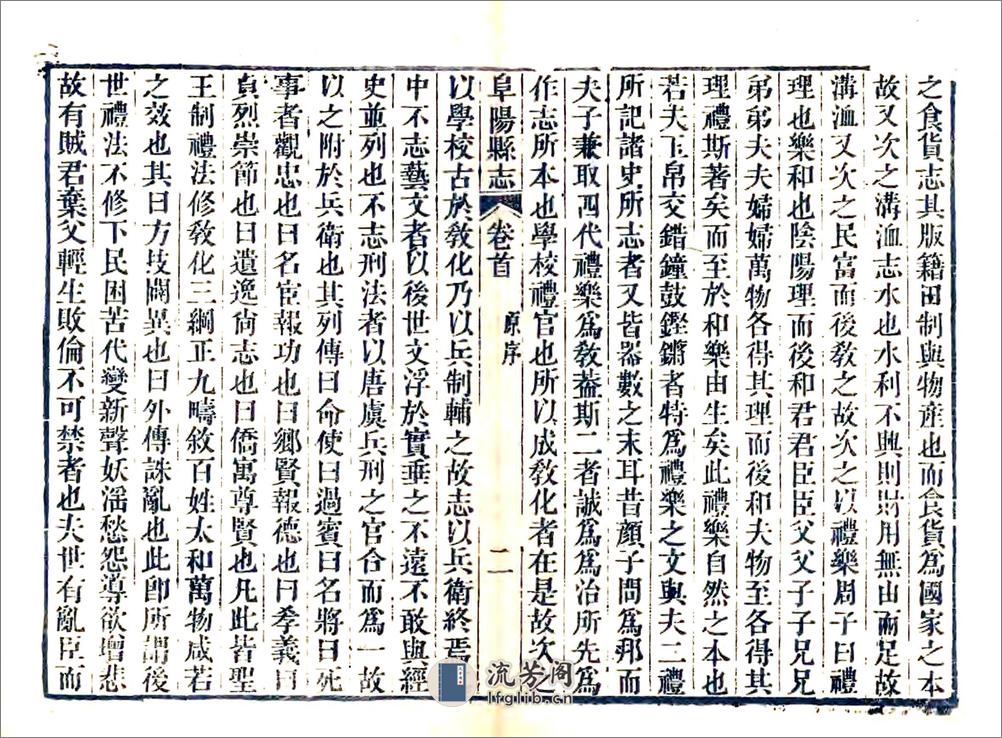 之食貨志其版籍田制與物産也而食貨為國家之本
故又次之溝洫志水也水利不興則財用無由而足故
溝洫又次之民富而後敎之故次之以禮樂周子曰禮
理也樂和也陰陽理而後和君君臣臣父父子子兄兄
弟弟夫夫婦婦萬物各得其理而後和夫物至各得其
理禮斯著矣而至於和樂由生矣此禮樂自然之本也
若夫玉帛交錯鐘鼓鏗鏘者特為禮樂之文與夫二禮
所記諸史所志者又皆器數之末耳昔顔子問為邦而
夫子兼取四代禮樂為敎葢斯二者誠為為治所先為
作志所本也學校禮官也所以成敎化者在是故次之
阜陽縣志 卷首 原序 二
以學校古於敎化乃以兵制輔之故志以兵衛終焉
中不志藝文者以後世文浮於實垂之不遠不敢與經
史並列也不志刑法者以唐虞兵刑之官合而為一故
以之附於兵衛也其列傳曰命使曰過賓曰名將曰死
事者觀忠也曰名臣報功也曰鄉賢報德也曰孝義曰
貞烈崇節也曰遺逸尙志也曰僑寓尊賢也凡此皆聖
王制禮法修敎化三綱正九疇敘百姓太和萬物咸若
之效也其曰方技闢異也曰外傳誅亂也此卽所謂後
世禮法不修下民困苦代變新聲妖滛愁怨導欲增悲
故有賊君棄父輕生敗倫不可禁者也夫世有亂臣而
流芳阁
glib.cn